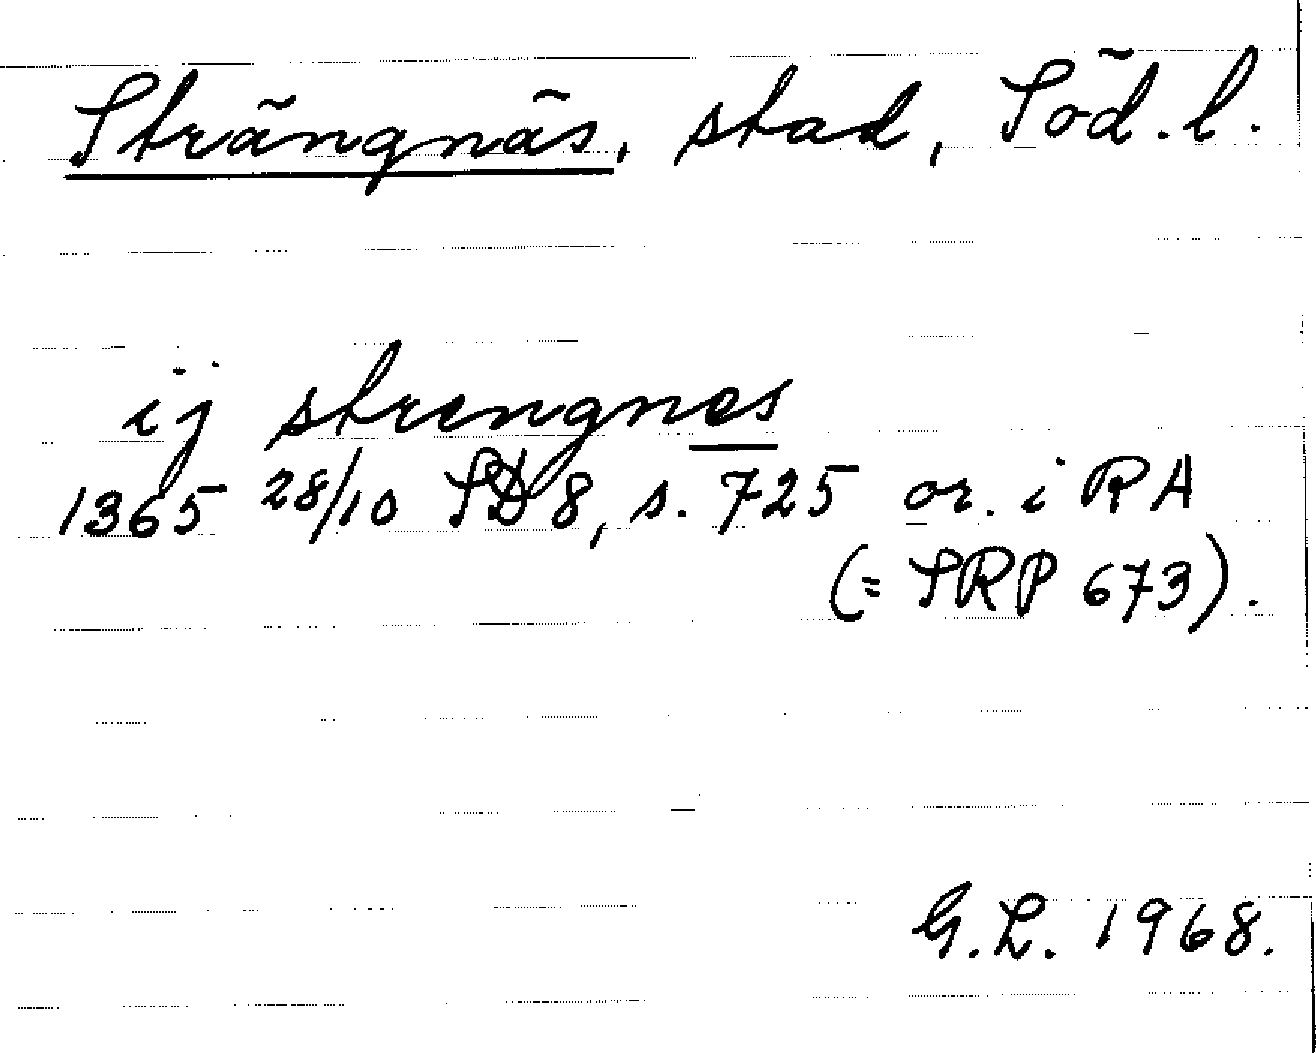 Strängnäs, stad, Söd. l.
ij strengnes
1365 28/10 SD 8, s. 725 or. i RA
(= SRP 673).
G.L. 1968.